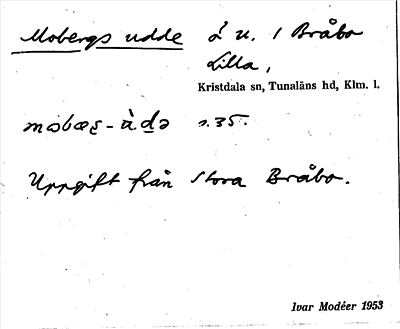 Mobergs udde å u. / Bråbo
Lilla,
Kristdala sn, Tunaläns hd, Klm. l.
s. 35.
Uppgift från Stora Bråbo.
Ivar Modéer 1953